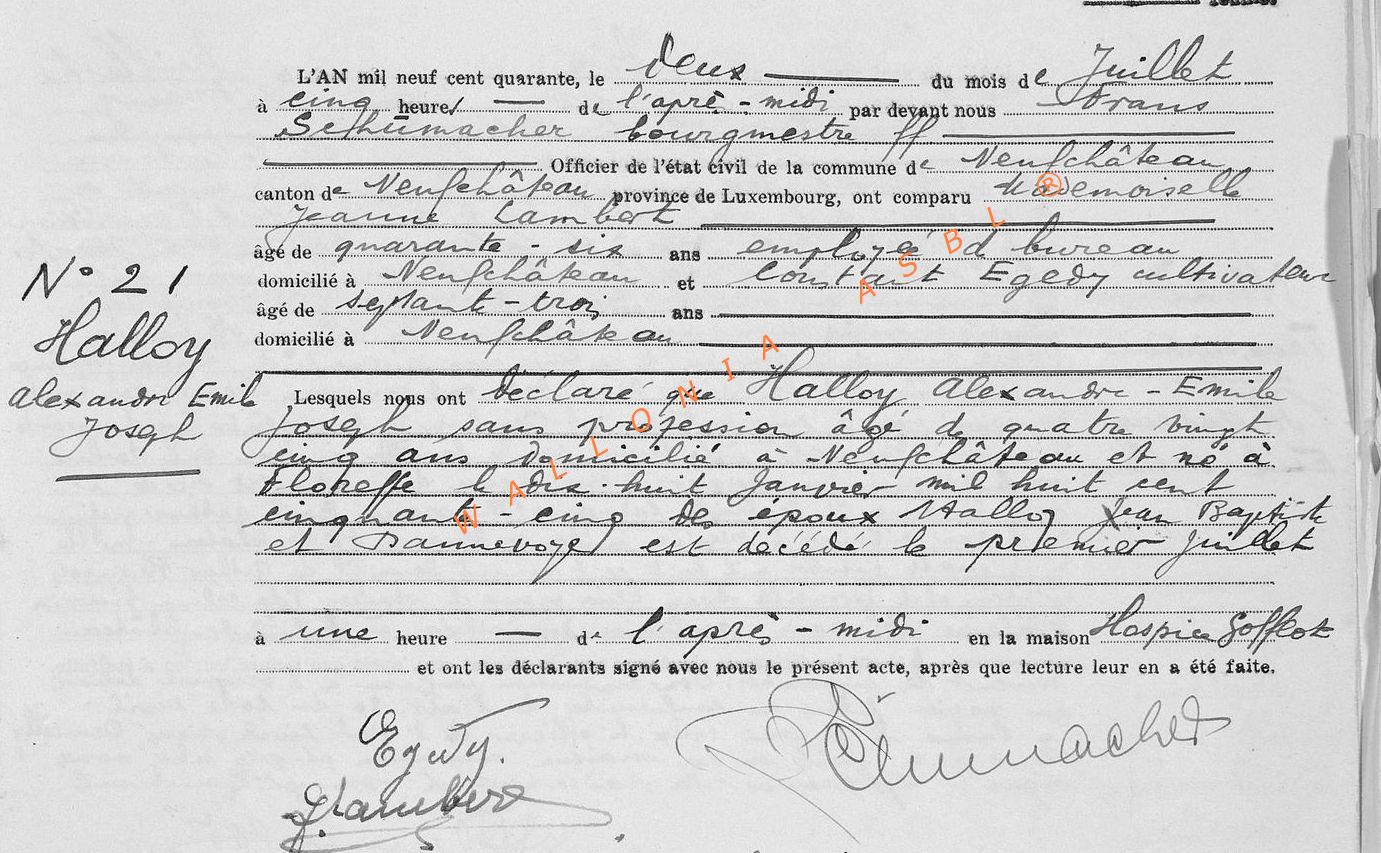 L'AN mil neuf cent quarante, le deux du mois de Juillet
à cinq heures de l'après-midi par devant nous Frans
Schumacher bourgmestre ff
Officier de l'état civil de la commune de Neufchâteau
canton de Neufchâteau province de Luxembourg, ont comparu Mademoiselle
Jeanne Lambert
âgé de quarante-six ans employée d bureau
domicilié à Neufchâteau et Constant Egedy cultivateur
âgé de septante-trois ans
domicilié à Neufchâteau
N° 21
Halloy
Alexandre Emile
Joseph
Lesquels nous ont déclaré que Halloy Alexandre-Emile
Joseph sans profession âgé de quatre vingt
cinq ans domicilié à Neufchâteau et né à
Floreffe le dix-huit Janvier mil huit cent
cinquante cinq des époux Halloy Jean Baptiste
et Dannevoye est décédé le premier juillet
à une heure de l'après-midi en la maison Hospice Gofflot
et ont les déclarants signé avec nous le présent acte, après que lecture leur en a été faite.
Egedy.
J Lambert
Schumacher
WALLONIA ASBL ®